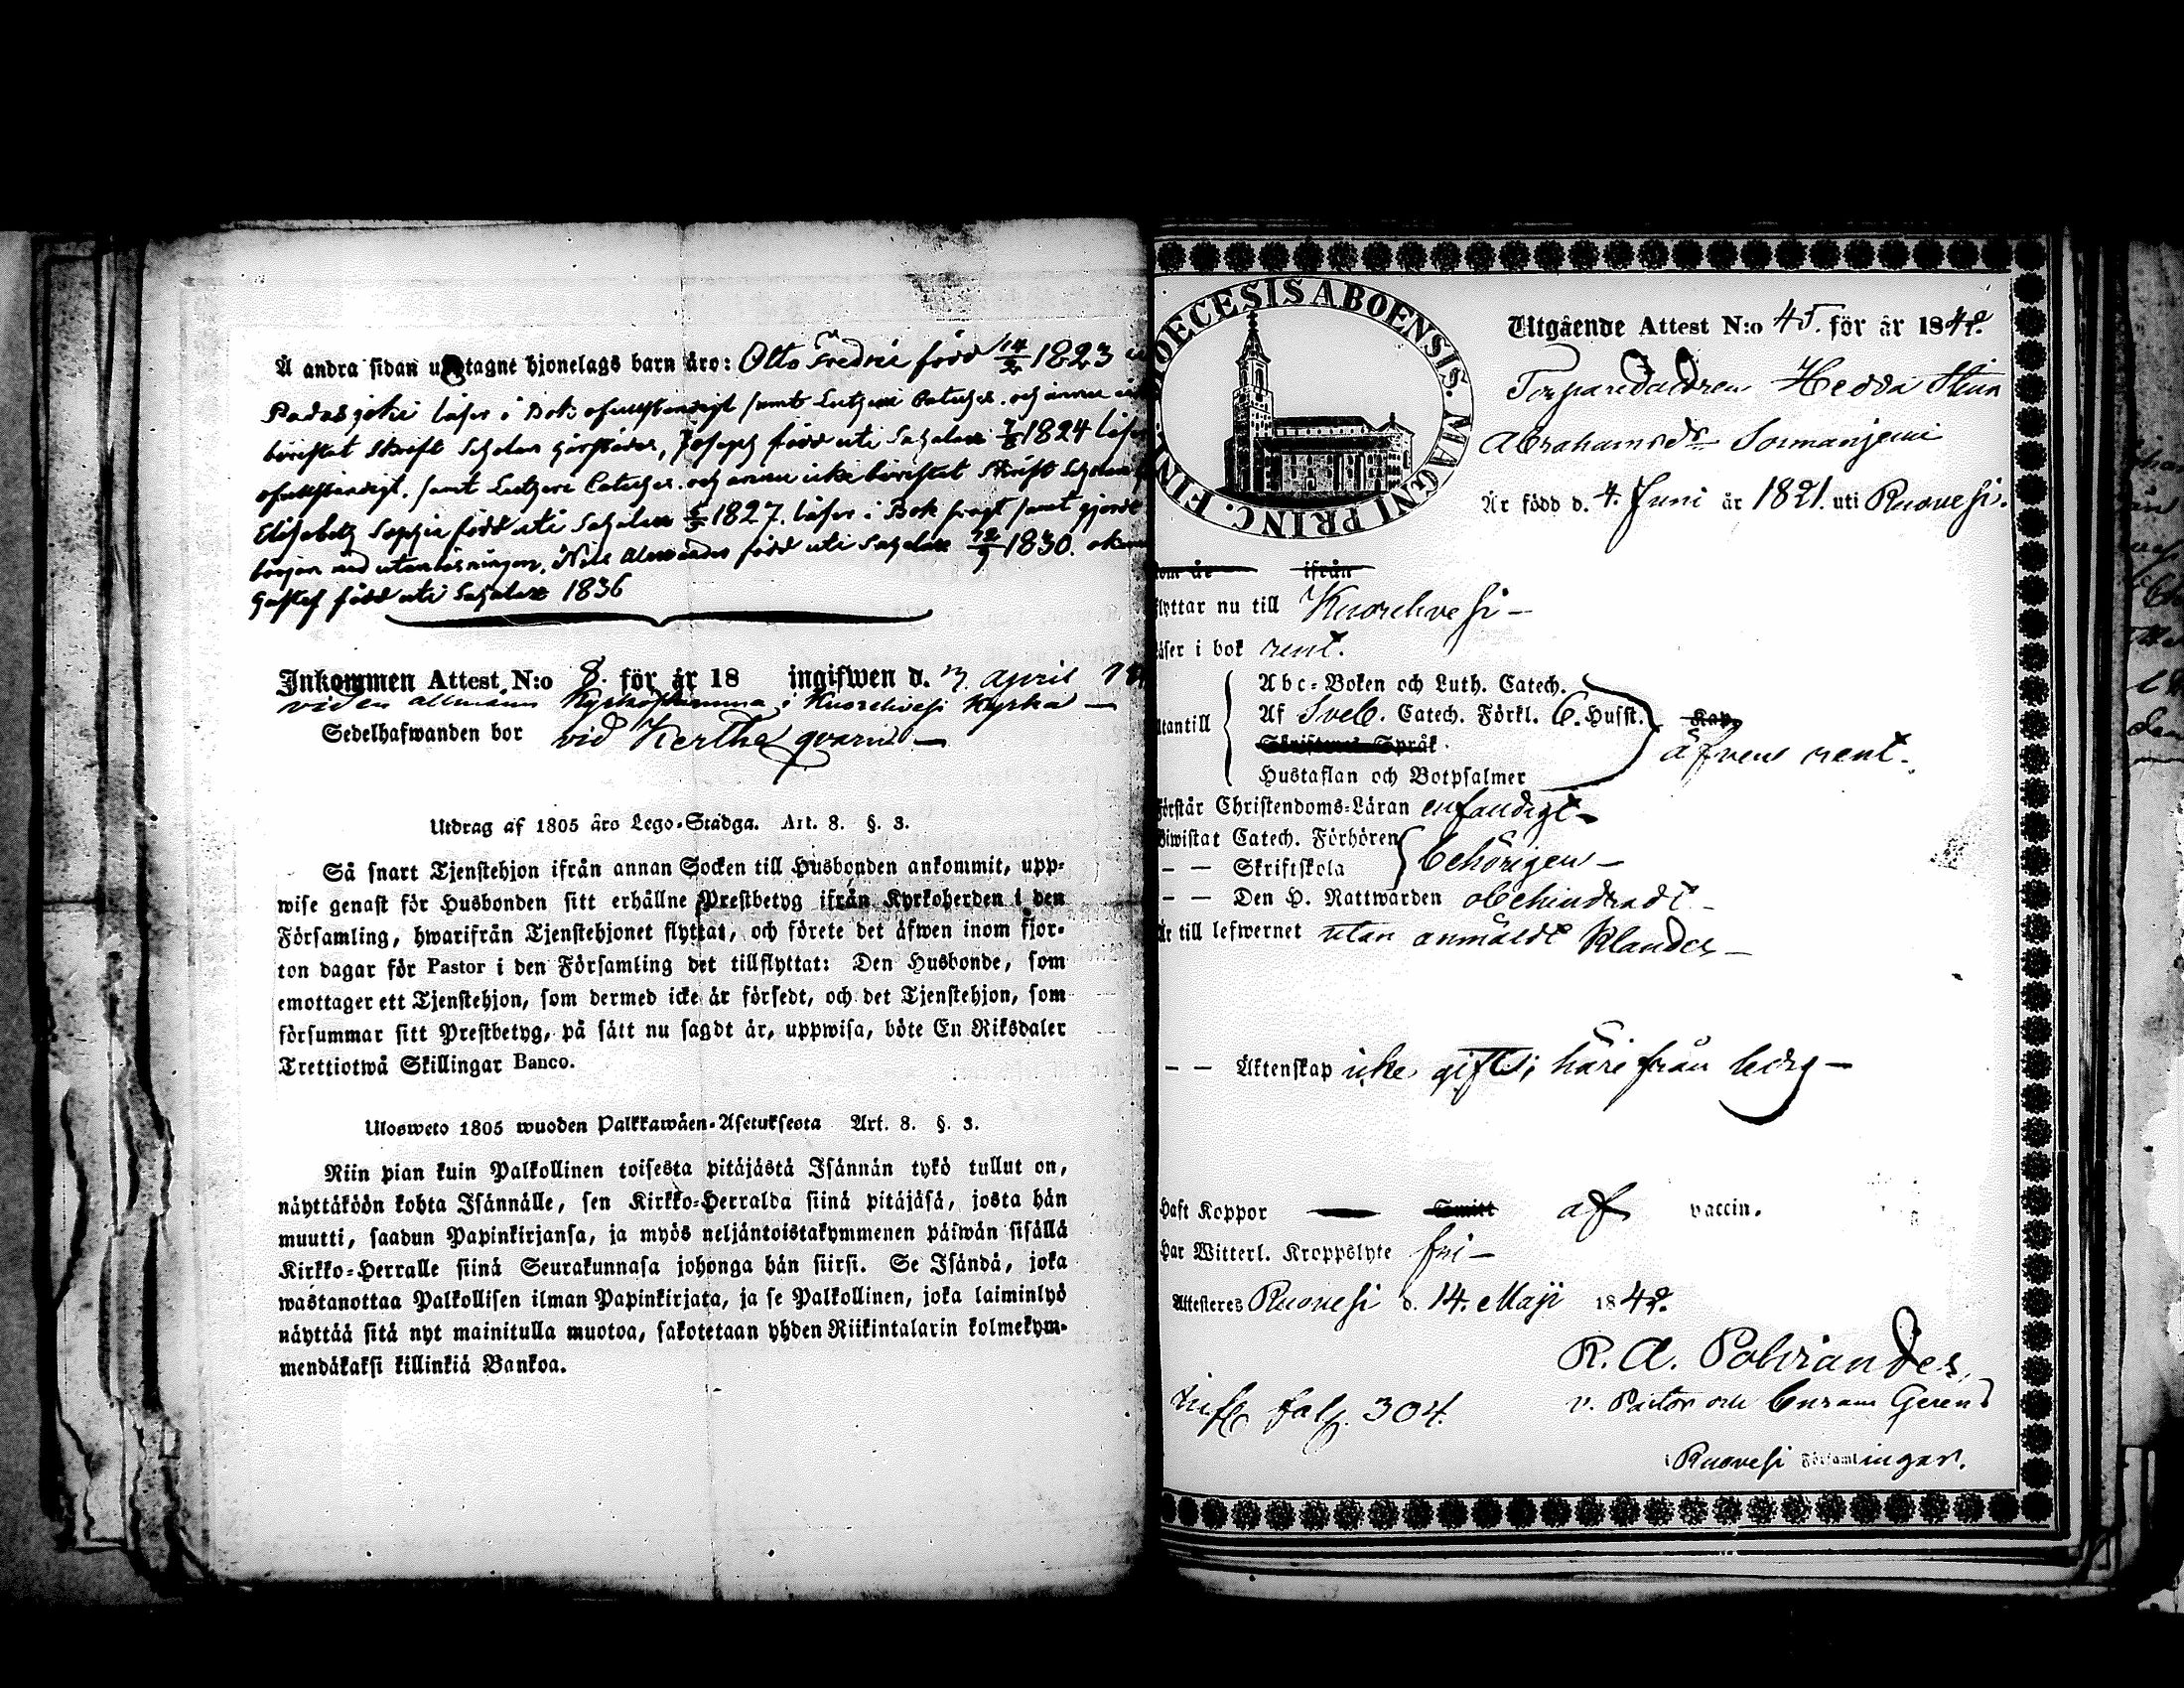 Å andra sidan upptagne hjonelags barn äro: Otto Fredric född 14/2 1823
Padasjoki läser i Bok ofullständigt samt Lutheri Cateches. och ännu
bevistat Skrift Scholan Joseph född uti Sahalax 1824 läser
ofullständigt. samt Lutheri Cateches. och ännu icke bevistat Skrift Scholan
Elisabeth Sophia född uti Sahalax 1827. läser i Bok samt gjordt
början med utanläsningen. Nils Alexander född uti Sahalax 12/9 1830.
Gustaf född uti Sahalax 1836
Inkommen Attest N:o 8. för år 18 ingifwen d. 3. April
vid en allmän Kyrkostämma i Kuorehvesi Kyrka —
Sedelhafwanden bor vid Kertte qvarn —
Utdrag af 1805 års Lego-Stadga. Art. 8. §. 3.
Så snart Tjenstehjon ifrån annan Socken till Husbonden ankommit, upp-
wise genast för Husbonden sitt erhållne Prestbetyg ifrån Kyrkoherden i den
Församling, hwarifrån Tjenstehjonet flyttat, och förete det äfwen inom fjor-
ton dagar för Pastor i den Församling det tillflyttat: Den Husbonde, som
emottager ett Tjenstehjon, som dermed icke är försedt, och det Tjenstehjon, som
försummar sitt Prestbetyg, på sätt nu sagdt är, uppwisa, böte En Riksdaler
Trettiotwå Skillingar Banco.
Ulosweto 1805 wuoden Palkkawäen-Asetuksesta Art. 8. §. 3.
Niin pian kuin Palkollinen toisesta pitäjästä Isännän tykö tullut on,
näyttäköön kohta Isännälle, sen Kirkko-Herralda siinä pitäjäsä, josta hän
muutti, saadun Papinkirjansa, ja myös neljäntoistakymmenen päiwän sisällä
Kirkko-Herralle siinä Seurakunnasa johonga hän siirsi. Se Isändä, joka
wastanottaa Palkollisen ilman Papinkirjata, ja se Palkollinen, joka laiminlyö
näyttää sitä nyt mainitulla muotoa, sakotetaan yhden Riikintalarin kolmekym-
mendäkaksi killinkiä Bankoa.
DIOECESIS ABOENSIS. MAGNI PRINC. FIN
Utgående Attest N:o 45. för år 1842.
Torparedottren Hedda Stina
Abrahamsdr Sormanjemi
Är född d. 4. Juni år 1821. uti Ruovesi.
kom år ifrån
flyttar nu till Kuorehvesi —
läser i bok rent.
Utantill
Abc-Boken och Luth. Catech.
Af Sveb. Catech. Förkl. C. Husst.
Skriftenes Språk
Hustaflan och Botpsalmer
Kap.
äfvens rent.
Förstår Christendoms-Läran enfaldigt —
Biwistat Catech. Förhören
— — Skriftskola behörigen —
— — Den H. Nattwarden obehindradt —
Är till lefwernet utan anmäldt klander —
— — Äktenskap icke gift; härifrån ledig —
Haft Koppor — Smitt af vaccin.
Har Witterl. Kroppslyte fri —
Attesteres Ruovesi d. 14. Maji 1842.
R. A. Polviander,
v. Pastor och Curam Gerend
i Ruovesi Församlingar.
fol. 304.